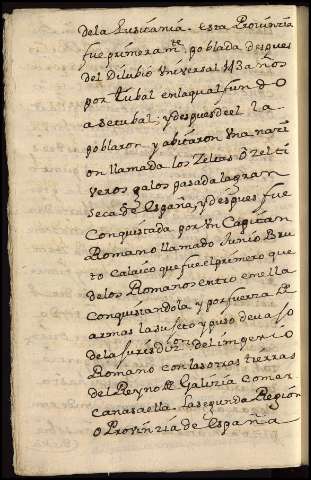 dela Lusitania. esta Provinzia
fue primeram.te poblada despues
del Dilubio Vniversal 143 años
por tubal enlaqual fundo
a setubal; y despues deel la
poblaron y abitaron Vna nazi
on llamada los Zeltas o zelti
veros galos pasada la gran
seca de España, y despues fue
Conquistada por Vn Capitan
Romano llamado Junio Bru
to Calaico que fue el primero que
delos Romanos entro enella
Conquistandola y por fuerza de
armas la sujeto y puso devajo
dela Jurisdizon del imperio
Romano con las otras tierras
del Reyno de Galizia comer
canas aella. La segunda Region
o Provinzia de España